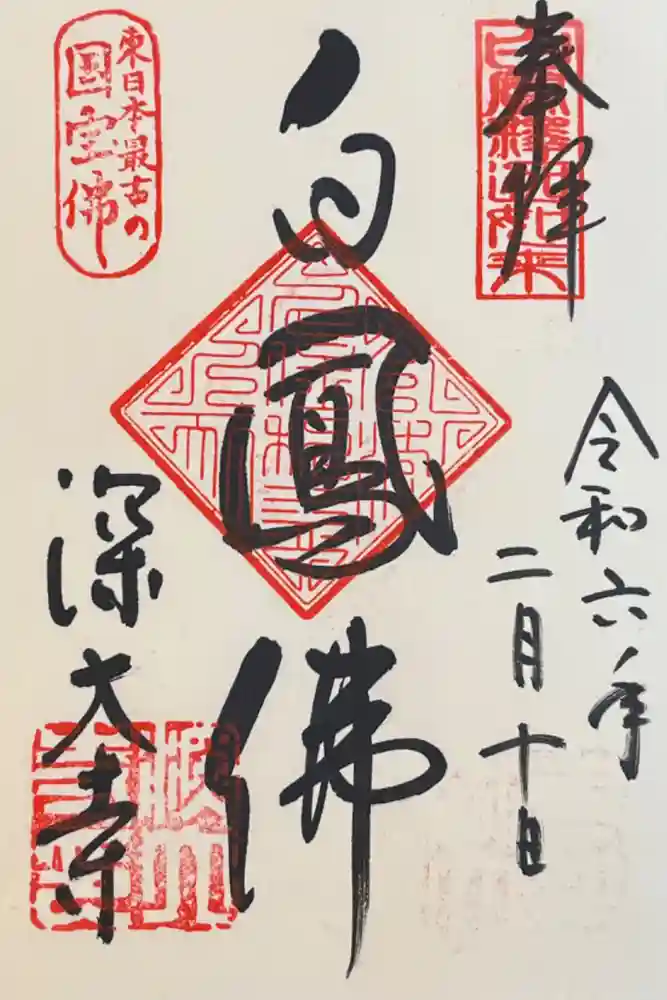 奉拝
白鳳釈迦如来
令和六年
二月十日
白鳳佛
東日本最古の
国宝佛
深大寺